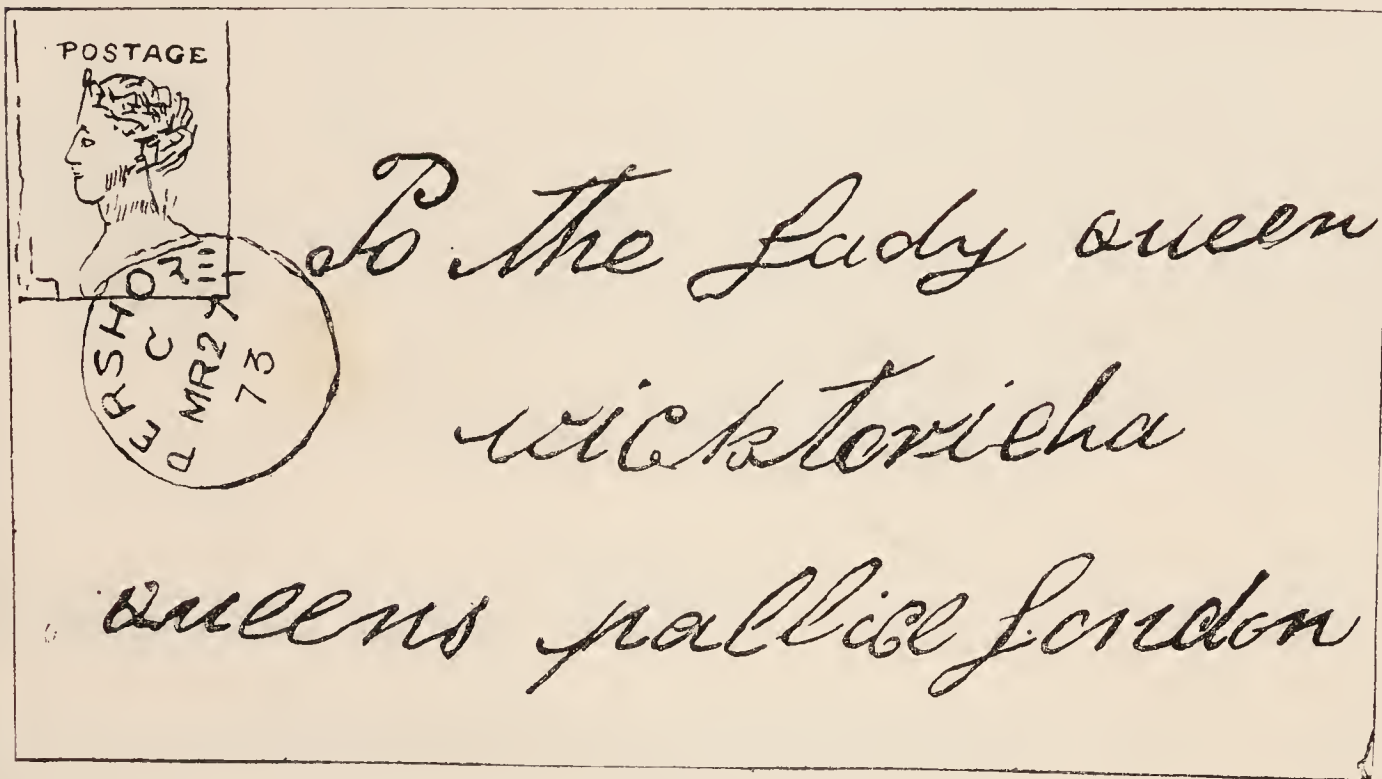 POSTAGE
PERSHORE
C
MR27
73
To the Lady queen
vicktoricha
queens pallice London